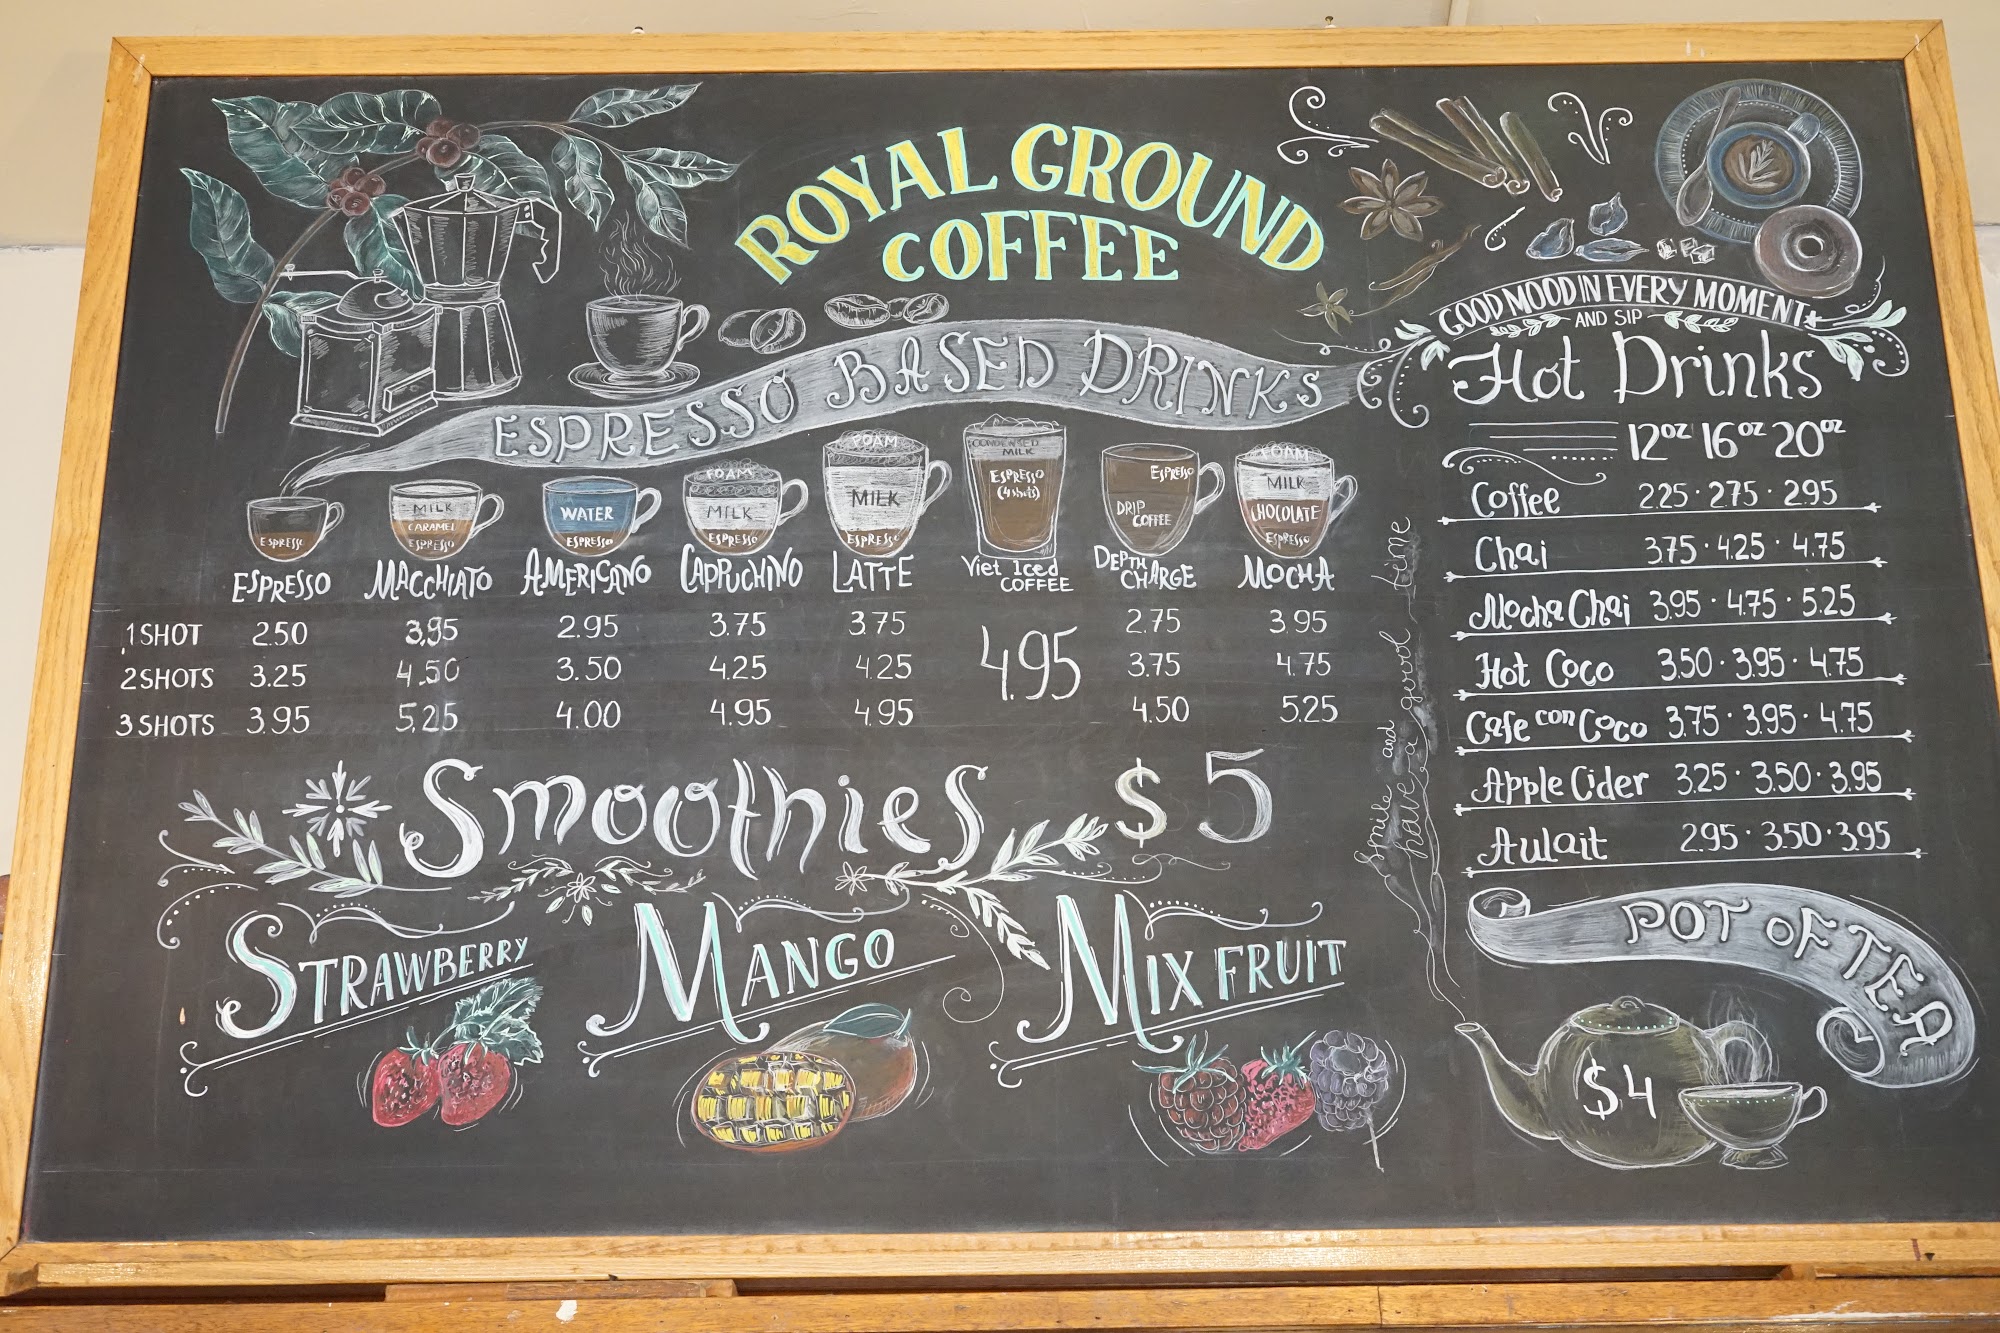 ROYAL GROUND
COFFEE
ESPRESSO BASED DRINKS
ESPRESSO
MILK
CARAMEL
ESPRESSO
WATER
ESPRESSO
FOAM
MILK
ESPRESSO
FOAM
MILK
ESPRESSO
CONDENSED
MILK
ESPRESSO
(4 shots)
ESPRESSO
DRIP
COFFEE
FOAM
MILK
CHOCOLATE
ESPRESSO
ESPRESSO MACCHIATO AMERICANO CAPPUCHINO LATTE Viet Iced COFFEE DEPTH CHARGE MOCHA
1 SHOT 2.50 3.95 2.95 3.75 3.75 2.75 3.95
4.95
2 SHOTS 3.25 4.50 3.50 4.25 4.25 3.75 4.75
3 SHOTS 3.95 5.25 4.00 4.95 4.95 4.50 5.25
Smoothies $5
STRAWBERRY MANGO MIX FRUIT
Smile and
have a good time
GOOD MOOD IN EVERY MOMENT
AND SIP
Hot Drinks
12oz 16oz 20oz
Coffee 2.25 · 2.75 · 2.95
Chai 3.75 · 4.25 · 4.75
Mocha Chai 3.95 · 4.75 · 5.25
Hot Coco 3.50 · 3.95 · 4.75
Cafe con Coco 3.75 · 3.95 · 4.75
Apple Cider 3.25 · 3.50 · 3.95
Aulait 2.95 · 3.50 · 3.95
POT OF TEA
$4